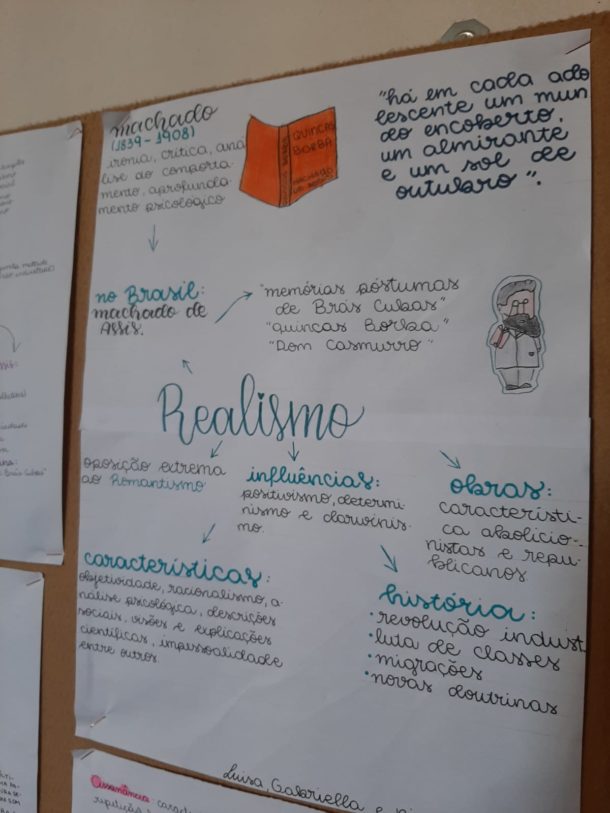 machado
(1839-1908)
ironia, crítica, aná
lise do comporta-
mento, aprofunda-
mento psicológico
QUINCAS
BORBA
MACHADO
DE ASSIS
"há em cada ado
lescente um mun
do encoberto,
um almirante
e um sol de
outubro".
no Brasil:
machado de
Assis.
"memórias póstumas
de Brás Cubas"
"Quincas Borba"
"Dom Casmurro"
Realismo
oposição extrema
ao Romantismo
influências:
positivismo, determi-
nismo e darwinis-
mo.
obras:
característi-
ca abolicio-
nistas e repu-
blicanos.
características:
objetividade, racionalismo, a-
nálise psicológica, descrições
sociais, visões e explicações
científicas, impessoalidade
entre outros
história:
•revolução indust
•luta de classes
•migrações
•novas doutrinas
Luisa, Gabriella e
Assonância
repetição